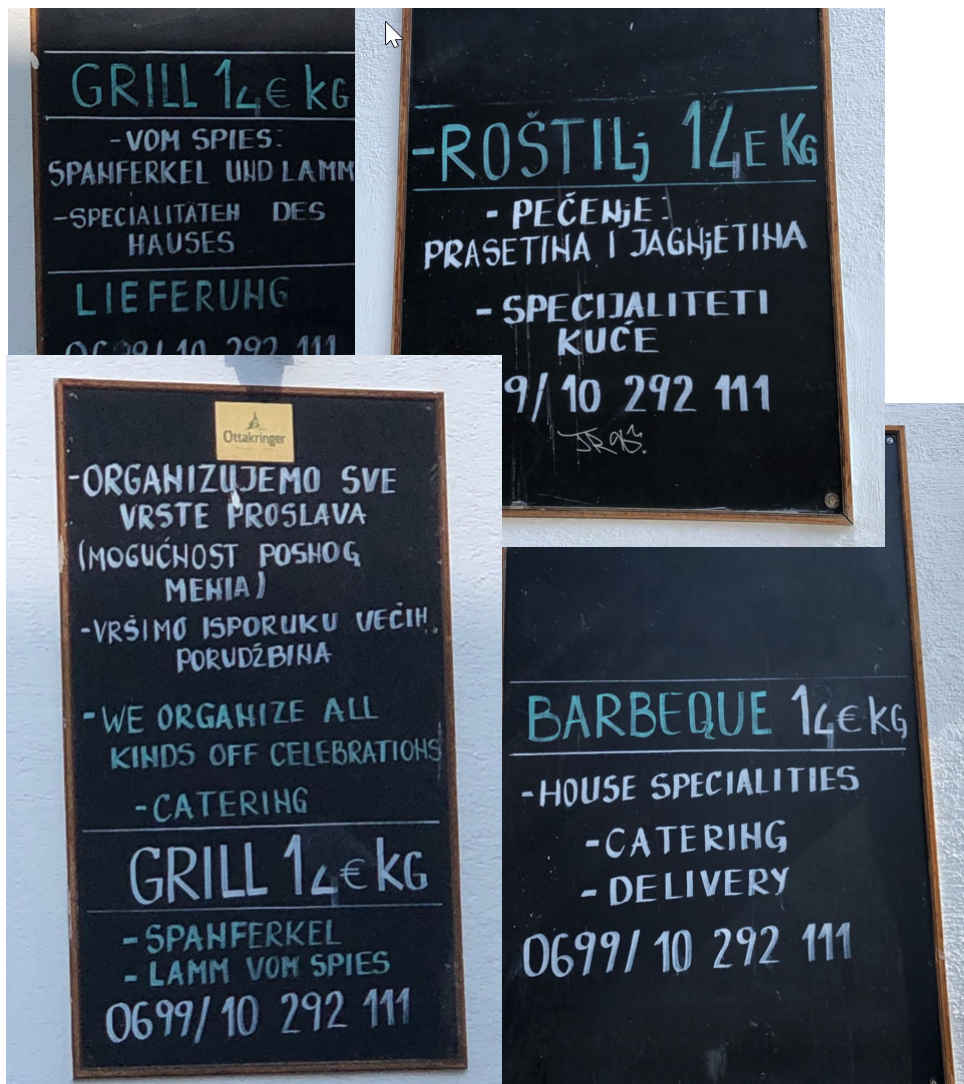 GRILL 14€ kG
-VOM SPIES:
SPANFERKEL UND LAMM
-SPECIALITÄTEN DES
HAUSES
LIEFERUNG
0699/ 10 292 111
-ROŠTILj 14E KG
- PEČENjE:
PRASETINA I JAGNjETINA
- SPECIJALITETI
KUĆE
9/ 10 292 111
Ottakringer
-ORGANIZUJEMO SVE
VRSTE PROSLAVA
(MOGUĆNOST POSNOG
MENIA)
-VRŠIMO ISPORUKU VEČIH
PORUDŽBINA
-WE ORGANIZE ALL
KINDS OFF CELEBRATIONS
-CATERING
GRILL 14€ kG
-SPANFERKEL
- LAMM VOM SPIES
0699/ 10 292 111
BARBEQUE 14€ kG
-HOUSE SPECIALITIES
-CATERING
- DELIVERY
0699/ 10 292 111